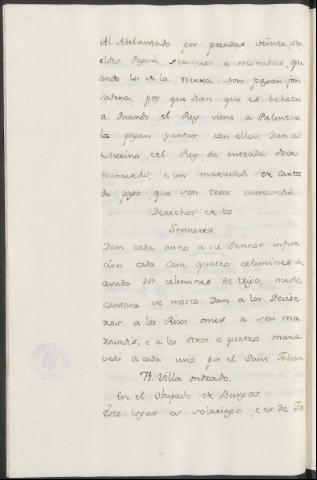 Al Adelantado por prendas veinte su
eldos. Pagan servicios e monedas, qu
ando los de la tierra. Non pagan fon
sadera, por que dian que es behetri
a. Quando el Rey viene a Palenzue
la pagan yantar con ellos. Dan al
Merino del Rey, de entrada doce
maravedis, e un maravedi de carta
de pago, que son trece maravedis.
Derechos de los
Sennores.
Dan cada anno a su Sennor infur
cion cada casa quatro celemines de
cevada dos celemines de trigo, media
cantara de mosto. Dan a los Devise
ros a los Ricos omes a seis ma
ravedis, e a los otros a quatro mara
vedi a cada uno por el Sant Johan
Tt. Villa ontrado.
En el Obispado de Burgos.
Este logar es solariego, e es de Jo